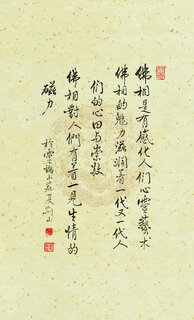 佛相是有感化人们心灵藝术
佛相的魅力滋润着一代又一代人
们的心田与崇敬
佛相對人們有着一見生情的
磁力
於雲
山